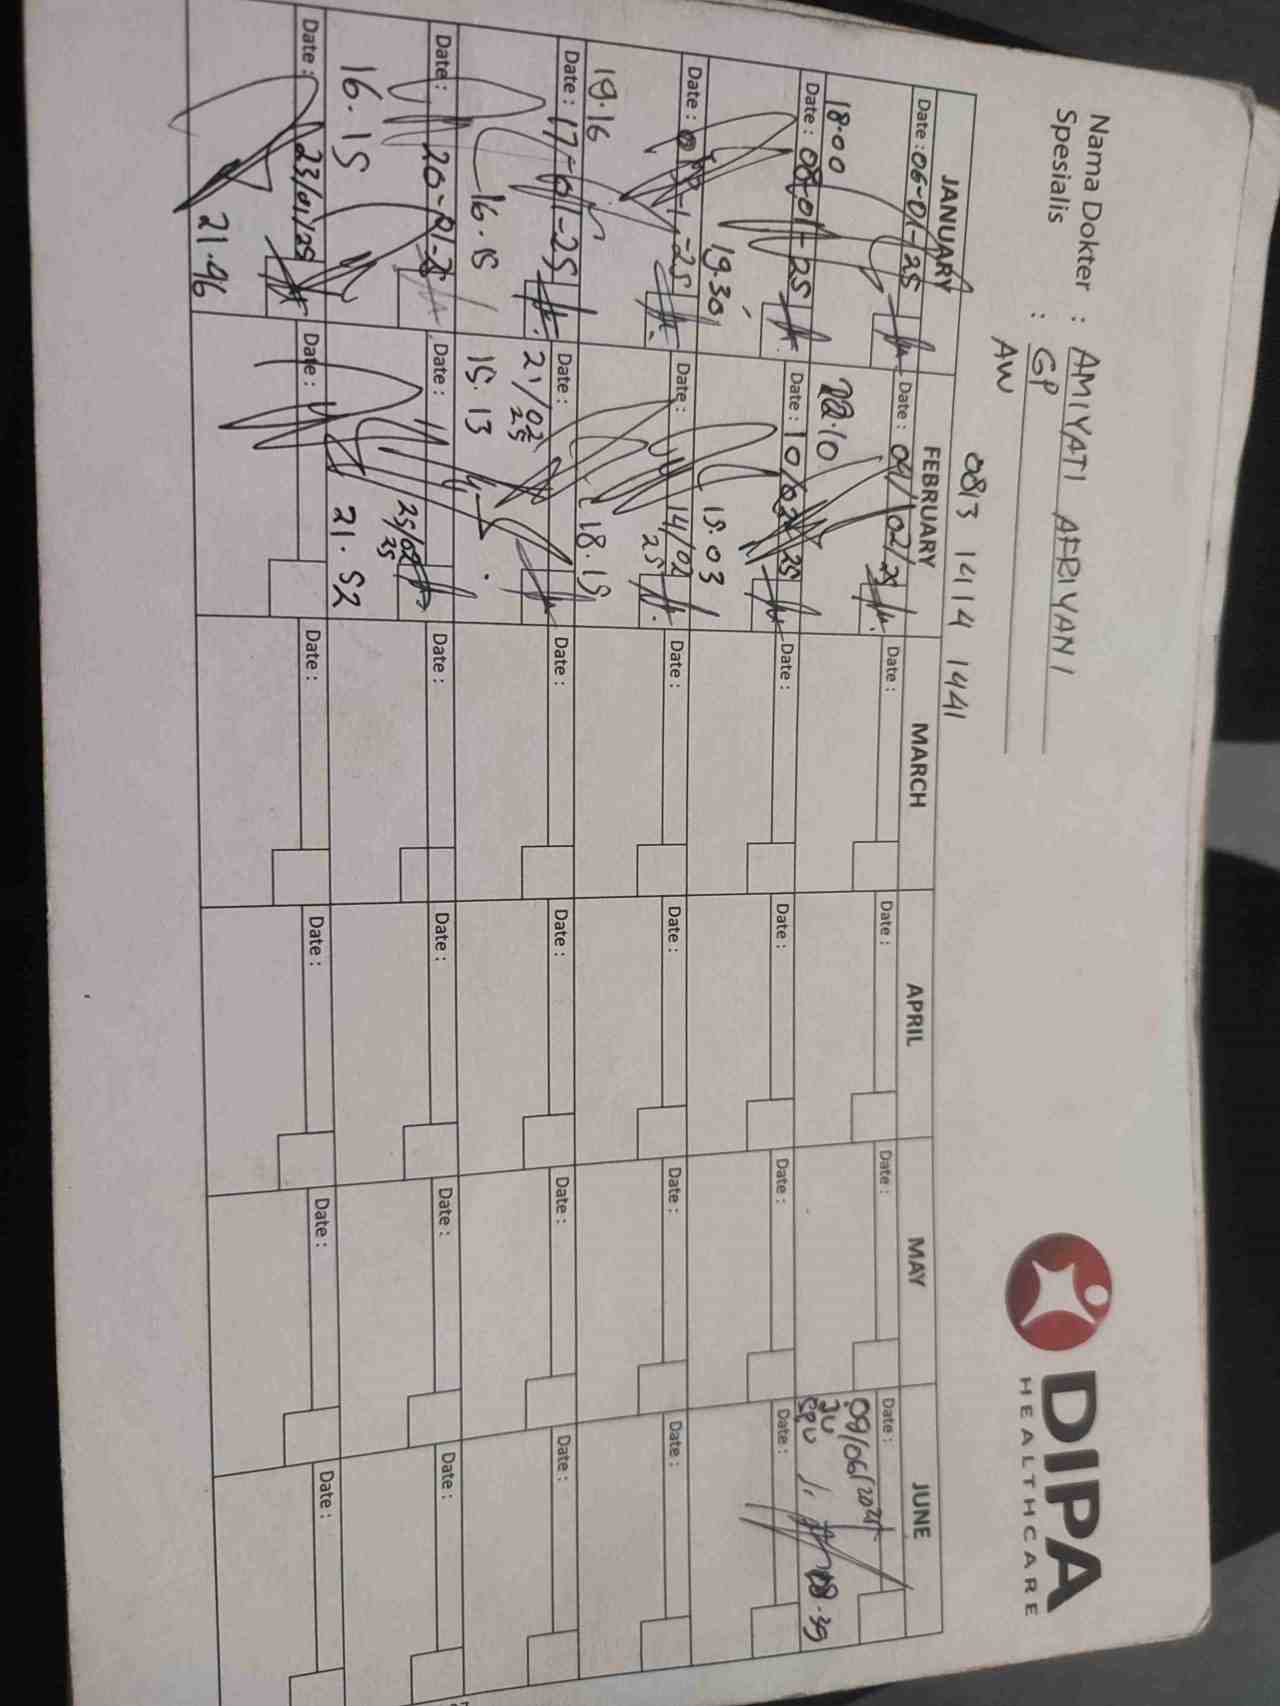 Nama Dokter : AMIYATI AFRIYANI
Spesialis : GP
AW
DIPA
HEALTHCARE
0813 1414 1441
JANUARY FEBRUARY MARCH APRIL MAY JUNE
Date : 06-01-25 Date : 09/02/25 Date : Date : Date : Date :
18.00 22.10 09/06/2025
08.39
Date : 08-01-25 Date : 10/02/25 Date : Date : Date : Date :
19.30 15.03
Date : Date : 14/02 25 Date : Date : Date : Date :
19.16 18.15
Date : 17-01-25 Date : 21/02 25 Date : Date : Date : Date :
16.15 15.13
Date : 20-01-25 Date : 25/02 25 Date : Date : Date : Date :
16.15 21.52
Date : 23/01/25 Date : Date : Date : Date : Date :
21.46